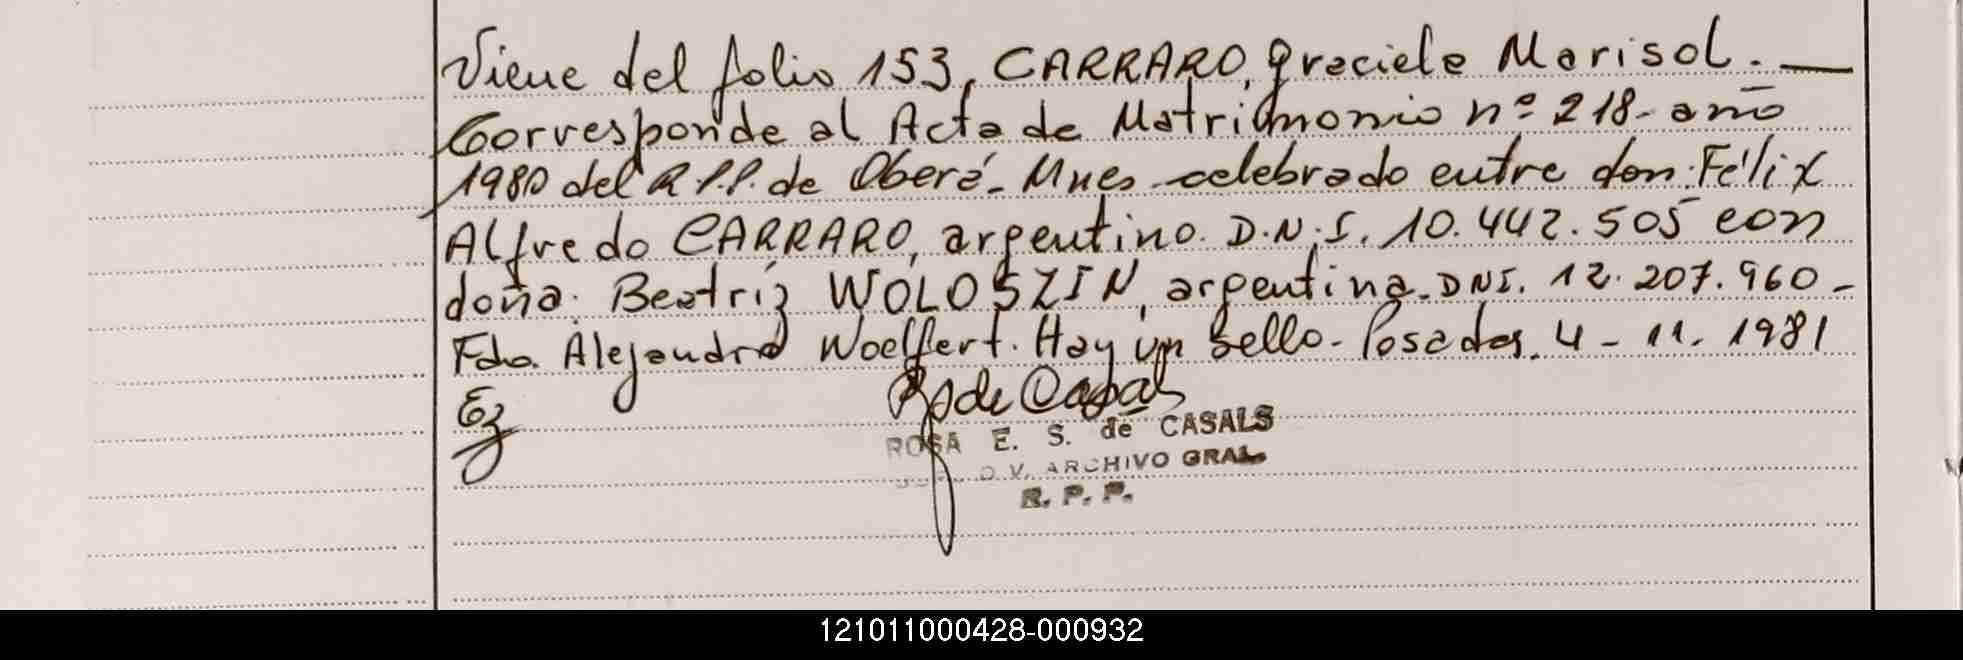 Viene del folio 153, CARRARO, Graciela Marisol. —
Corresponde al Acta de Matrimonio nº 218- año
1980 del R.P.P. de Oberá- Mnes celebrado entre don: Félix
Alfredo CARRARO, argentino. D.N.I. 10.442.505 con
doña: Beatríz WOLOSZIN, argentina. DNI. 12.207.960-
Fdo. Alejandro Woelfert. Hay un sello- Posadas, 4-11-1981
Ez
R de Casals
ROSA E. S. de CASALS
D.V. ARCHIVO GRAL
R. P. P.
121011000428-000932